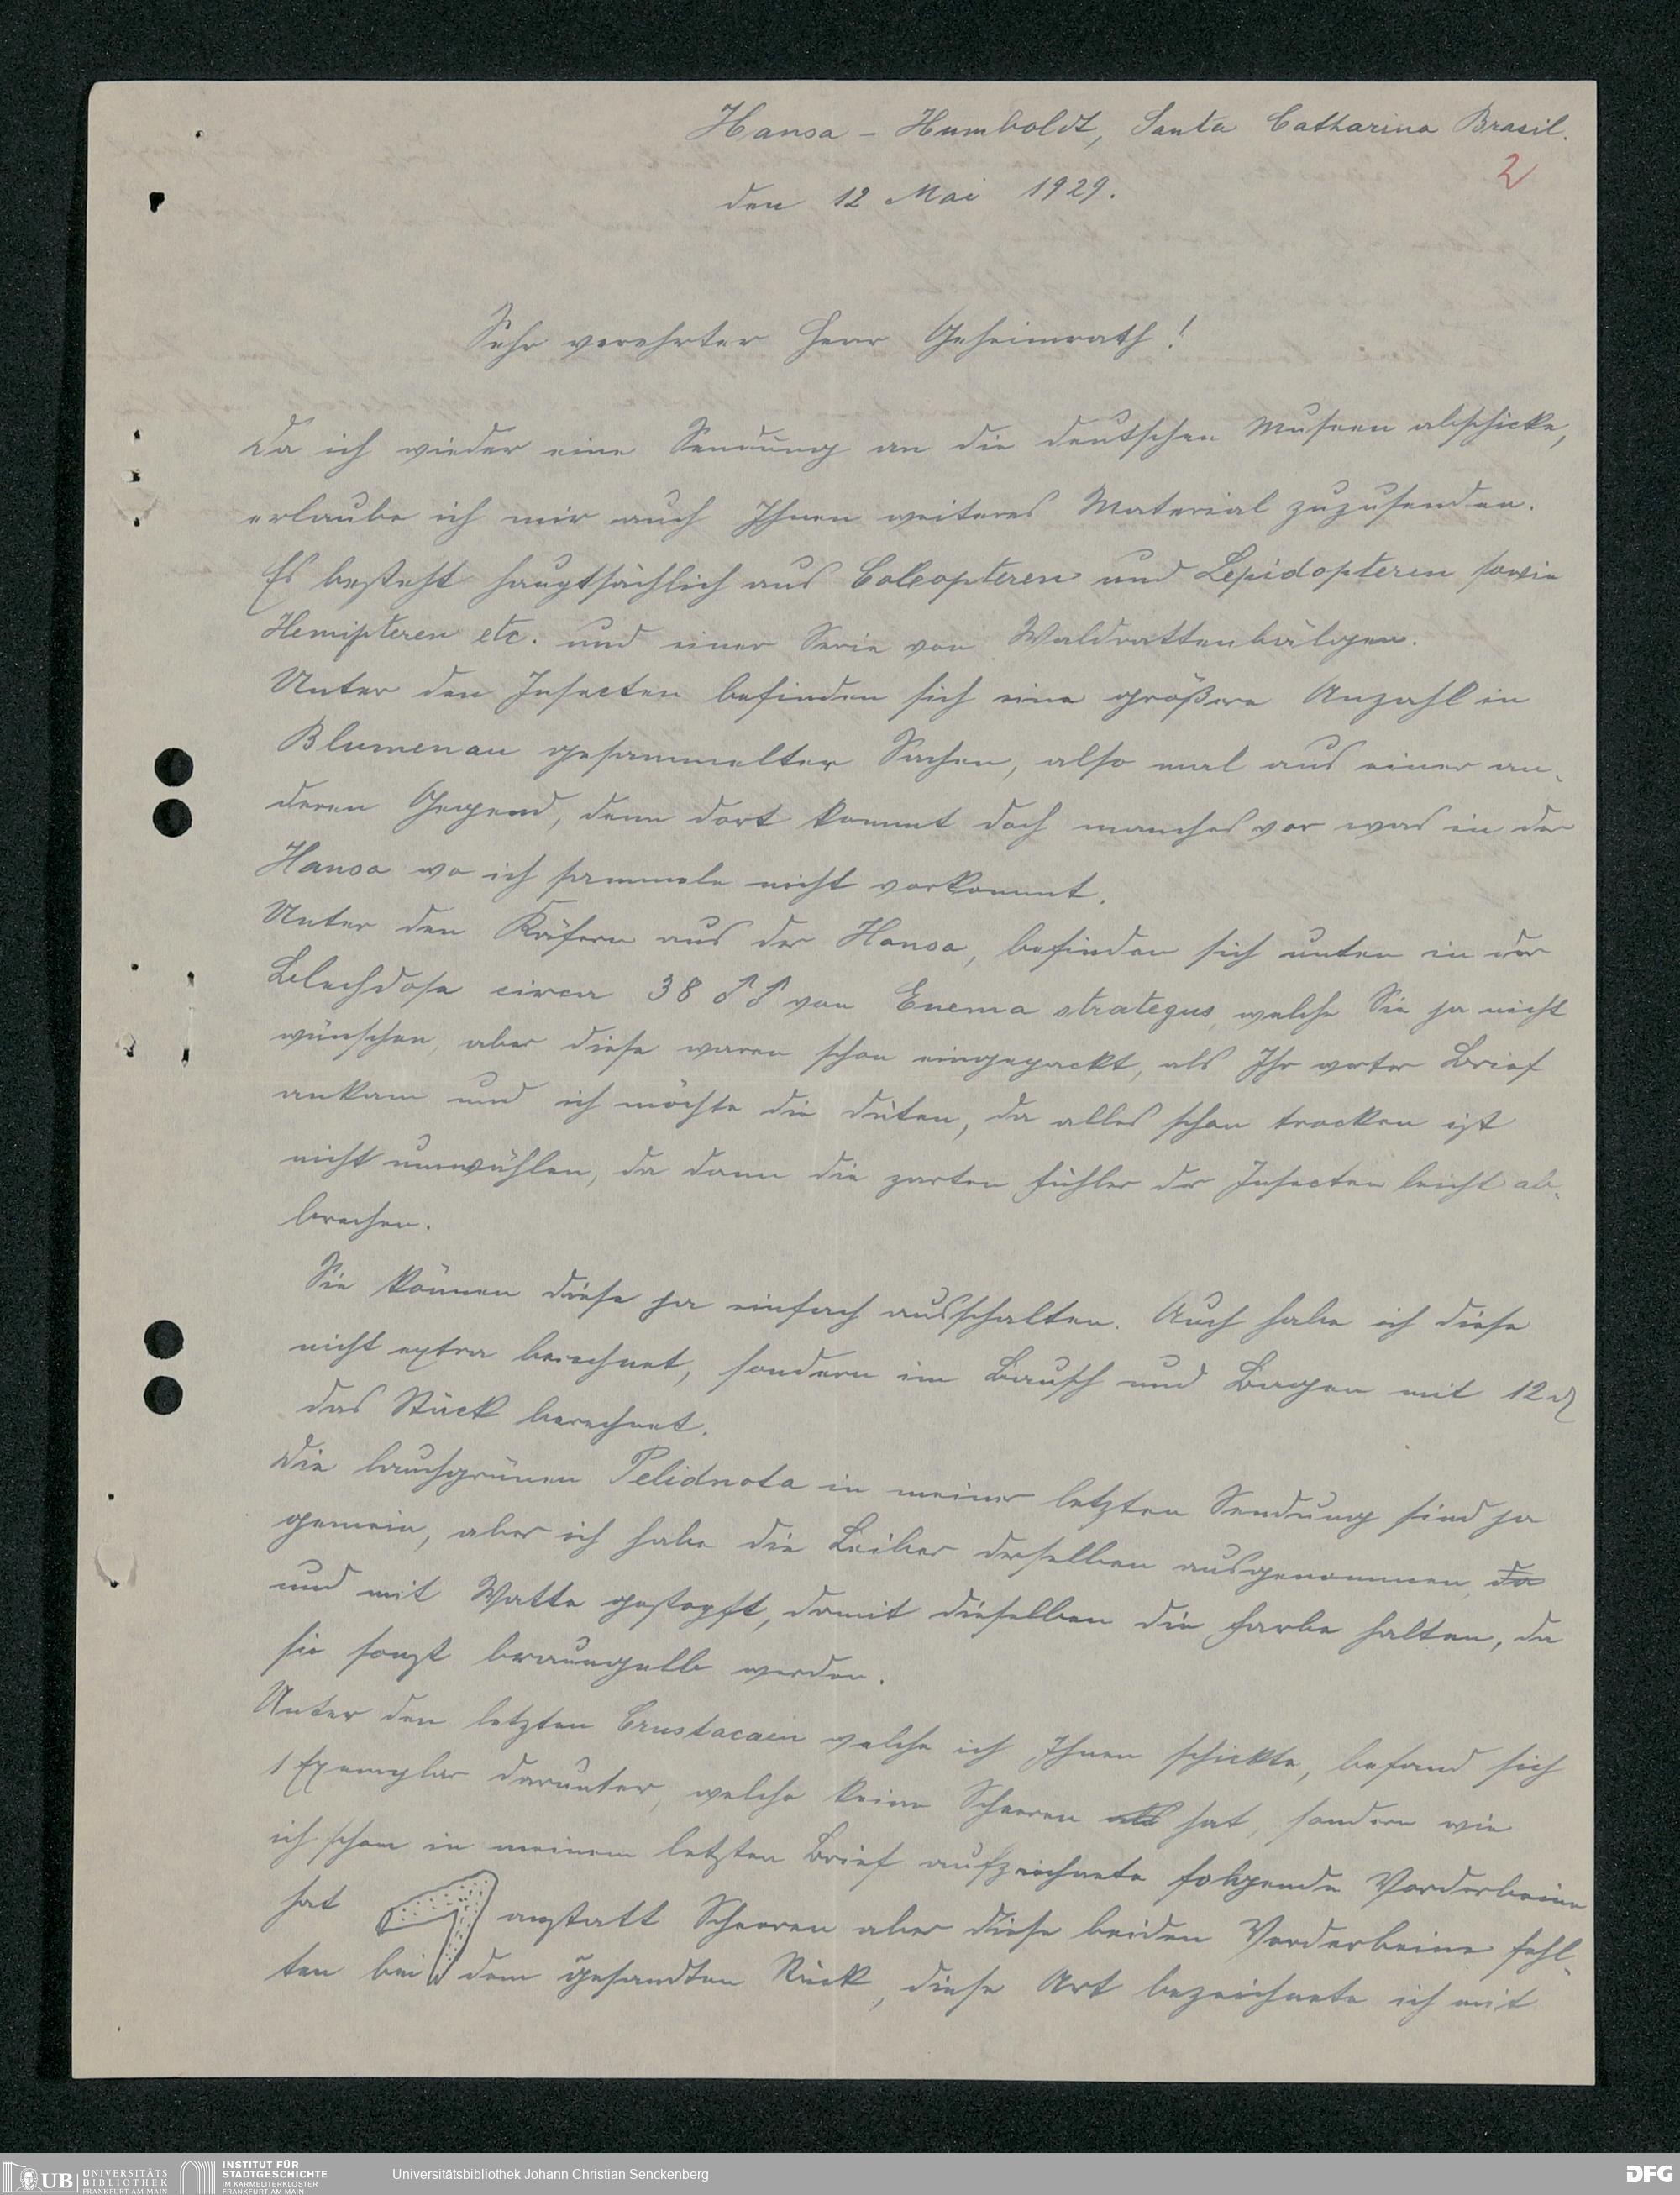 Hansa – Humboldt, Santa Catharina Brasil.
2
den 12 Mai 1929.
Sehr verehrter Herr Geheimrath!
Da ich wieder eine Sendung an die deutschen Museen abschicke,
erlaube ich mir auch Ihnen weiteres Material zuzusenden.
Es besteht hauptsächlich aus Coleopteren und Lepidopteren sowie
Hemipteren etc. und einer Serie von Waldrattenbälgen.
Unter den Insecten befinden sich eine größere Anzahl in
Blumenau gesammelter Sachen, also mal aus einer an-
deren Gegend, denn dort kommt doch manches vor was in der
Hansa wo ich sammele nicht vorkommt.
Unter den Käfern aus der Hansa, befinden sich unten in der
Blechdose circa 38 ♂♂ von Enema strategus, welche Sie ja nicht
wünschen, aber diese waren schon eingepackt, als Ihr werter Brief
ankam und ich möchte die Düten, da alles schon trocken ist
nicht umwühlen, da dann die zarten Fühler der Insecten leicht ab-
brechen.
Sie können diese ja einfach ausschalten. Auch habe ich diese
nicht extra berechnet, sondern im Bausch und Bogen mit 12 ₰
das Stück berechnet.
Die lauchgrünen Pelidnota in meiner letzten Sendung sind ja
gemein, aber ich habe die Leiber derselben ausgenommen, da
und mit Watte gestopft, damit dieselben die Farbe halten, da
sie sonst braungelb werden.
Unter den letzten Crustacaen welche ich Ihnen schickte, befand sich
1 Exemplar darunter, welche keine Scheeren als hat, sondern wie
ich schon in meinem letzten Brief aufzeichnete folgende Vorderbeine
hat anstatt Scheeren aber diese beiden Vorderbeine fehl-
ten bei dem gesandten Stück, diese Art bezeichnete ich mit
UB UNIVERSITÄTS
BIBLIOTHEK
FRANKFURT AM MAIN
INSTITUT FÜR
STADTGESCHICHTE
IM KARMELITERKLOSTER
FRANKFURT AM MAIN
Universitätsbibliothek Johann Christian Senckenberg
DFG